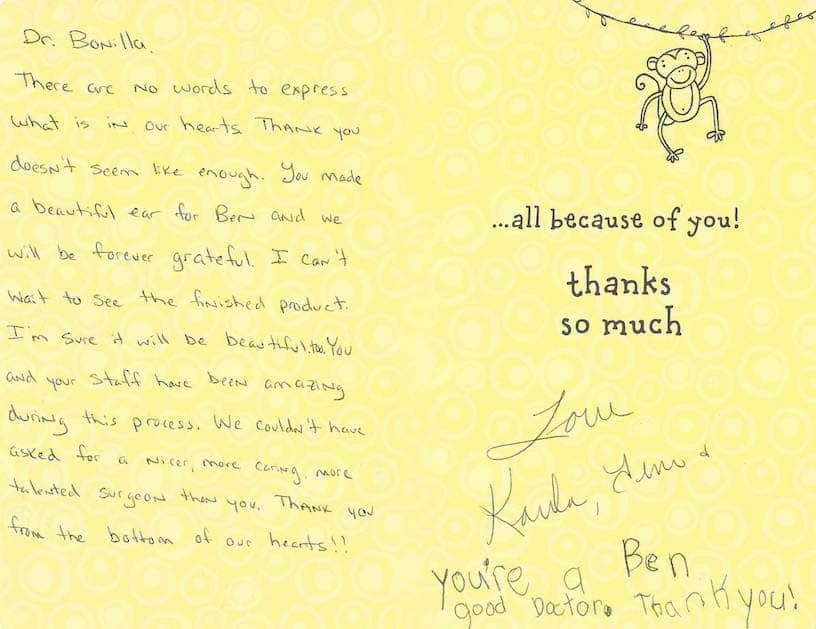 Dr. Bonilla.
There are no words to express
what is in our hearts Thank you
doesn't seem like enough. You made
a beautiful ear for Ben and we
will be forever grateful. I can't
wait to see the finished product.
I'm sure it will be beautiful.too. You
and your staff have been amazing
during this process. We couldn't have
asked for a nicer, more caring, more
talented surgeon than you. Thank you
from the bottom of our hearts!!
...all because of you!
thanks
so much
Love
Karla,
Ben
you're a
good Doctor. Thank you!